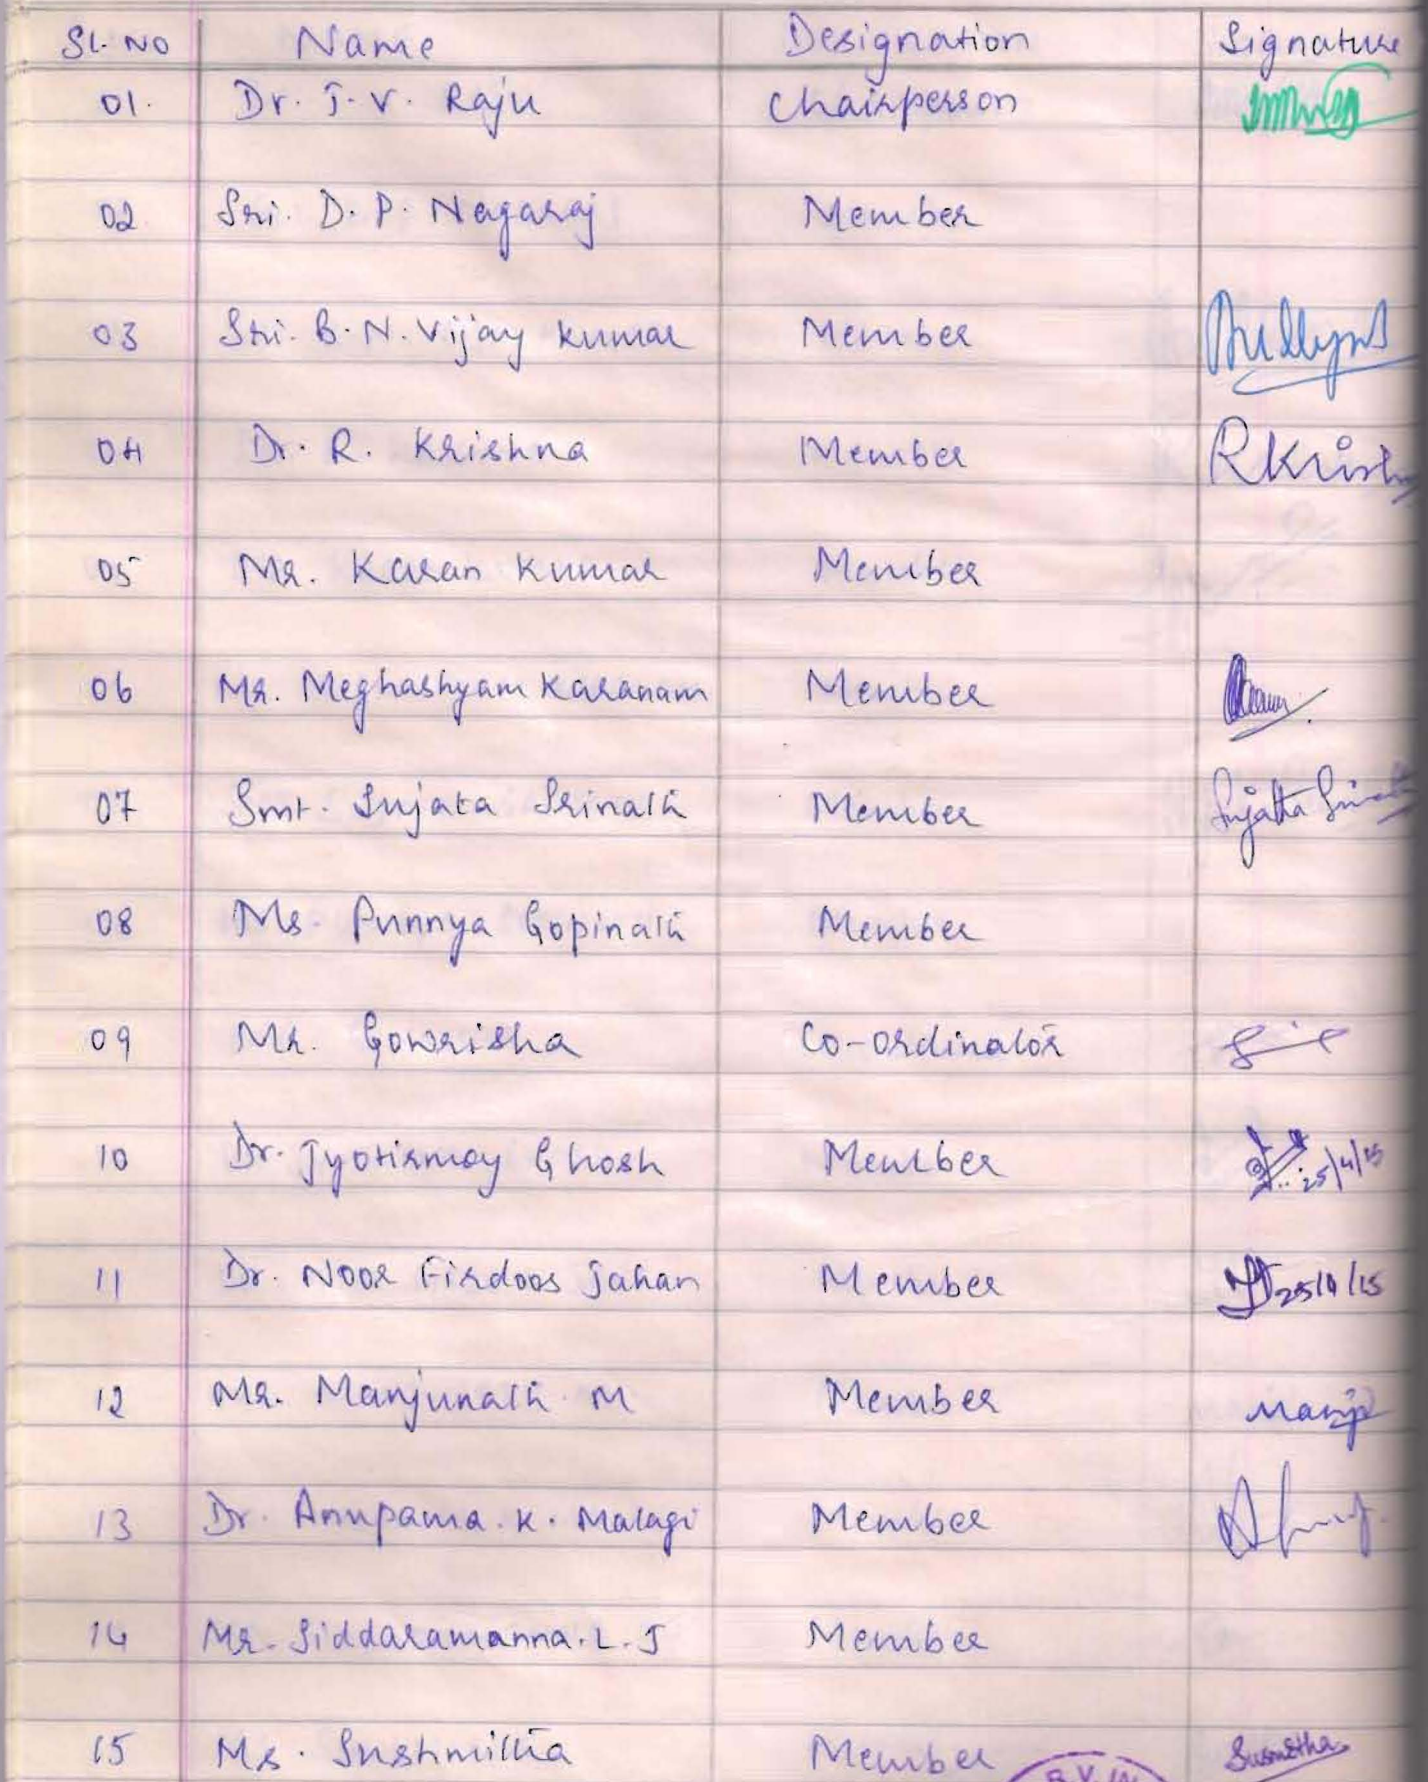 Sl. No Name Designation Signature
01. Dr. T. V. Raju Chairperson
02. Sri. D. P. Nagaraj Member
03 Sri. B. N. Vijay Kumar Member
04 Dr. R. Krishna Member RKrish
05 Mr. Karan Kumar Member
06 Mr. Meghashyam Karanam Member
07 Smt. Sujata Srinath Member Sujatha
08 Ms. Punnya Gopinath Member
09 Mr. Gowrisha Co-ordinator
10 Dr. Jyotirmoy Ghosh Member 25/4/15
11 Dr. Noor Firdoos Jahan Member 25/4/15
12 Mr. Manjunath M Member Manj
13 Dr. Anupama. K. Malagi Member
14 Mr. Siddaramanna. L. J Member
15 Ms. Sushmitha Member Susmitha